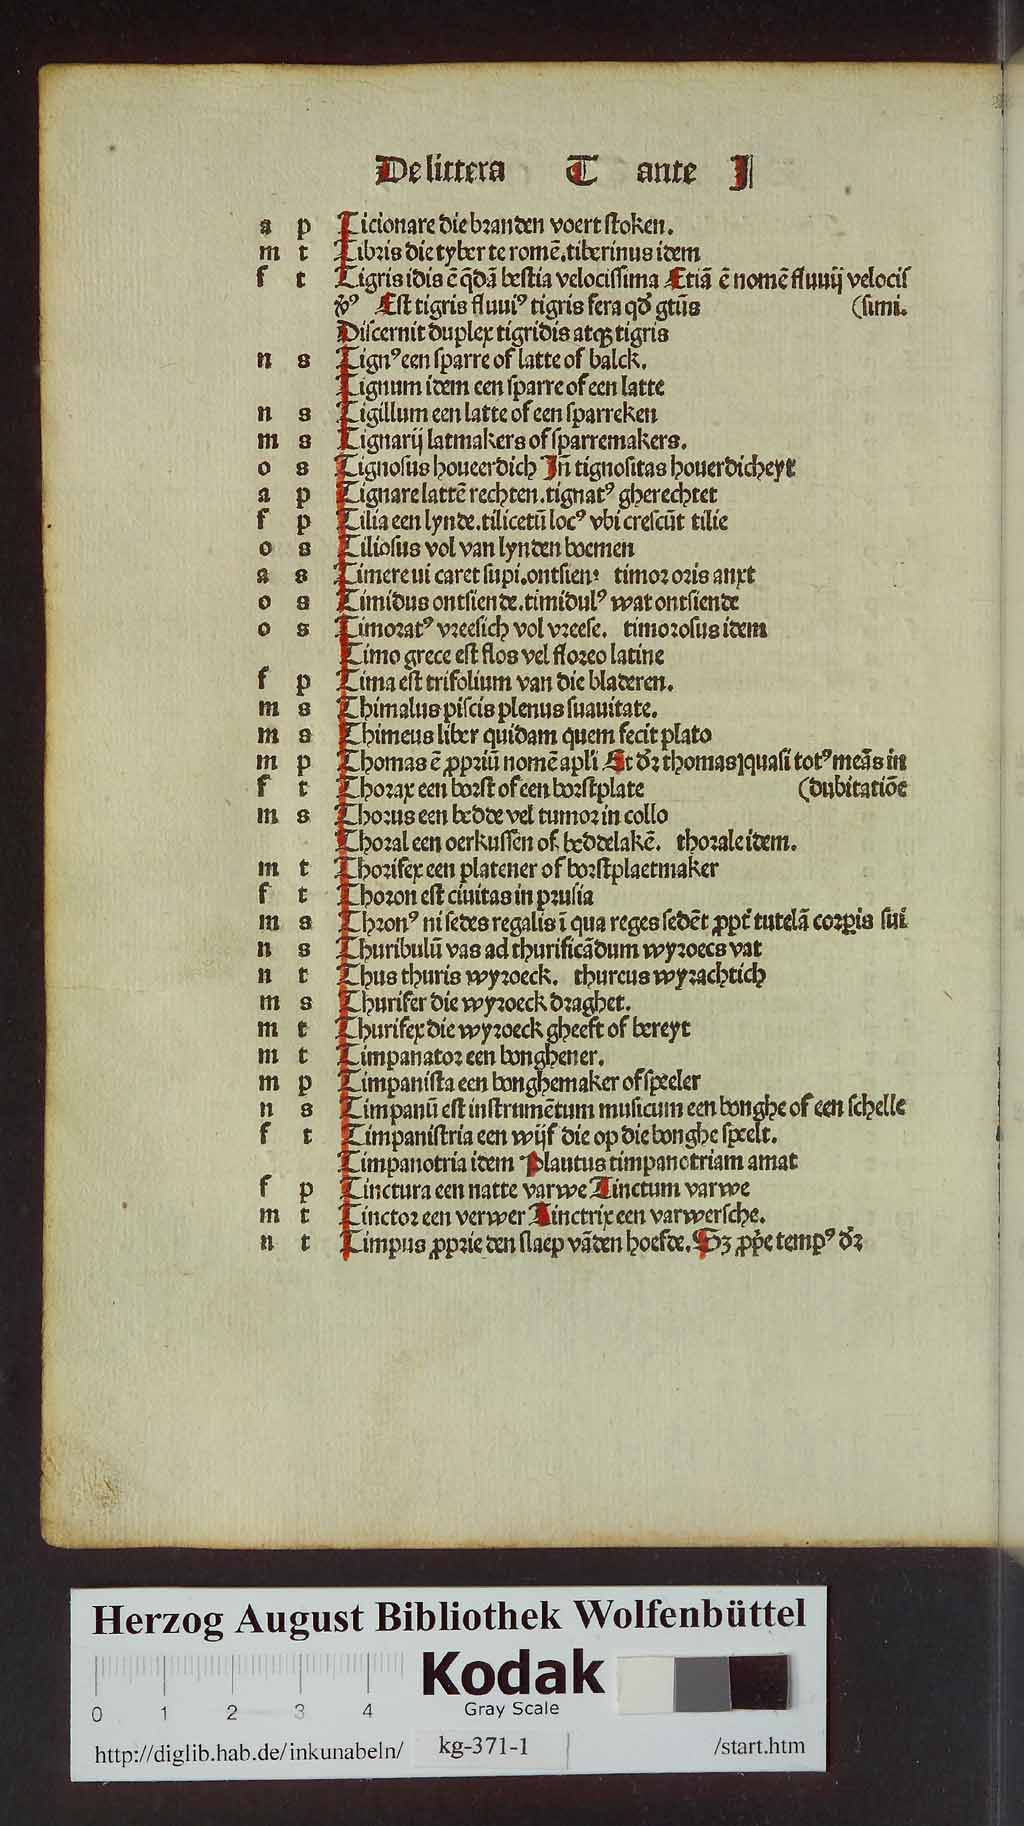 De littera T ante I
a p Ticionare die branden voert stoken.
m t Tibris die tyber te romē.tiberinus idem
f t Tigris idis ē q̄dā bestia velocissima Etiā ē nomē fluuij velocis
Est tigris fluuiꝰ tigris fera qđ gtūs (simi.
Discernit duplex tigridis atqꝫ tigris
n s Tignꝰ een sparre of latte of balck.
Tignum idem een sparre of een latte
n s Tigillum een latte of een sparreken
m s Tignarij latmakers of sparremakers.
o s Tignosus houeerdich Jn̄ tignositas houerdicheyt
a p Tignare lattē rechten.tignatꝰ gherechtet
f p Tilia een lynde.tilicetū locꝰ vbi crescūt tilie
o s Tiliosus vol van lynden boemen
a s Timere ui caret supi.ontsien: timor oris anxt
o s Timidus ontsiende.timidulꝰ wat ontsiende
o s Timoratꝰ vreesich vol vreese. timorosus idem
Timo grece est flos vel floreo latine
f p Tima est trifolium van die bladeren.
m s Thimalus piscis plenus suauitate.
m s Thimeus liber quidam quem fecit plato
m p Thomas ē ꝓpriū nomē apli Et dr̄ thomas quasi totꝰ meās in
f t Thorax een borst of een borstplate (dubitatiōe
m s Thorus een bedde vel tumor in collo
Thoral een oerkussen of beddelakē. thorale idem.
m t Thorifex een platener of borstplaetmaker
f t Thoron est ciuitas in prusia
m s Thronꝰ ni sedes regalis ī qua reges sedēt ꝓpt̄ tutelā corꝑis sui
n s Thuribulū vas ad thurificādum wyroecs vat
n t Thus thuris wyroeck. thureus wyrachtich
m s Thurifer die wyroeck draghet.
m t Thurifex die wyroeck gheeft of bereyt
m t Timpanator een bonghener.
m p Timpanista een bonghemaker of speeler
n s Timpanū est instrumētum musicum een bonghe of een schelle
f t Timpanistria een wijf die op die bonghe speelt.
Timpanotria idem Plautus timpanotriam amat
f p Tinctura een natte varwe Tinctum varwe
m t Tinctor een verwer Tinctrix een varwersche.
n t Timpus ꝓprie den slaep vāden hoefde. Sꝫ ꝓpe tempꝰ dr̄
Herzog August Bibliothek Wolfenbüttel
Kodak
Gray Scale
0 1 2 3 4
http://diglib.hab.de/inkunabeln/ kg-371-1 /start.htm